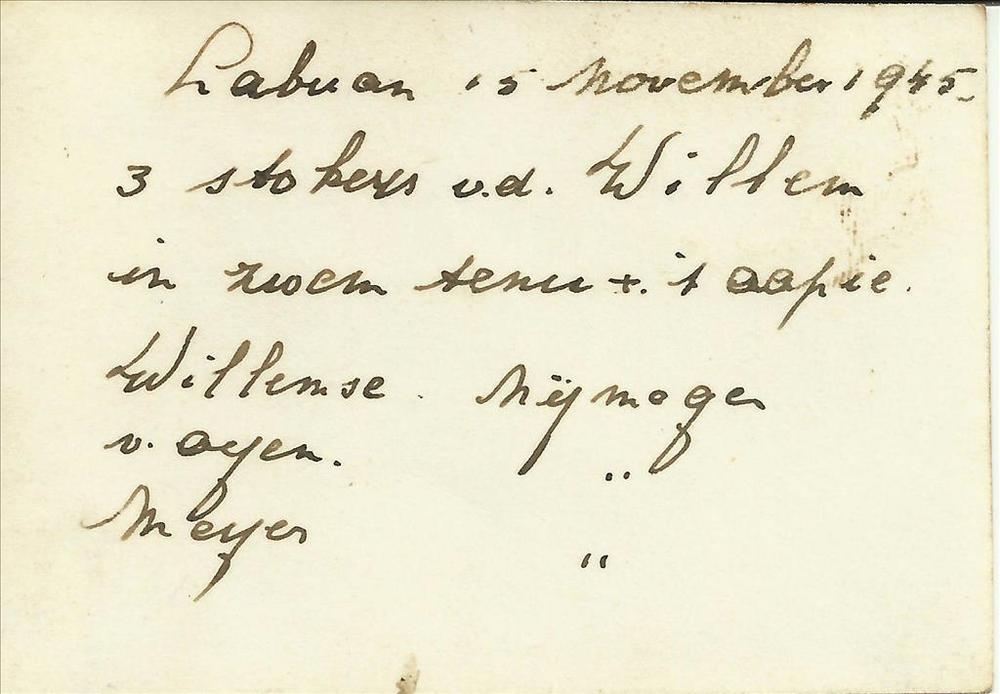 Labuan 15 November 1945.
3 stokers v.d. Willem
in zwem tenu +. 't aapie.
Willemse. Nijmegen
v. Oyen. "
Meyer "